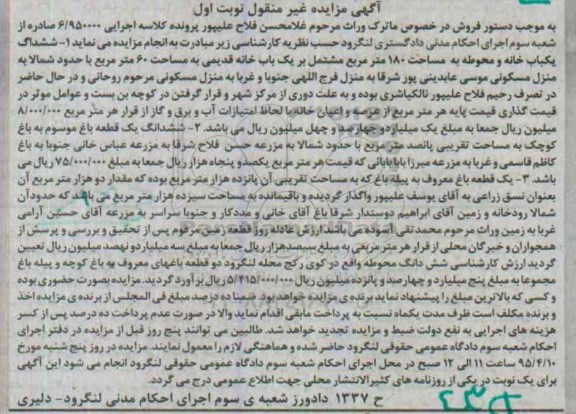 آگهی مزایده غیر منقول نوبت اول
به موجب دستور فروش در خصوص ماترک وراث مرحوم غلامحسن فلاح علیپور پرونده کلاسه اجرایی ۶/۹۵۰۰۰۰ صادره از
شعبه سوم اجرای احکام مدنی دادگستری لنگرود حسب نظریه کارشناسی زیر مبادرت به انجام مزایده می نماید ۱- ششدانگ
یکباب خانه و محوطه به مساحت ۱۸۰ متر مربع مشتمل بر یک باب خانه قدیمی به مساحت ۶۰ متر مربع با حدود شمالا به
منزل مسکونی موسی عابدینی پور شرقا به منزل فرج اللهی جنوبا و غربا به منزل مسکونی مرحوم روحانی و در حال حاضر
در تصرف رحیم فلاح علیپور نالکیاشری بوده و به علت دوری از مرکز شهر و قرار گرفتن در کوچه بن بست و عوامل موثر در
قیمت گذاری قیمت پایه هر متر مربع از عرصه و اعیان خانه با لحاظ امتیازات آب و برق و گاز از قرار هر متر مربع ۸/۰۰۰/۰۰۰
میلیون ریال جمعا به مبلغ یک میلیارد و چهارصد و چهل میلیون ریال می باشد. ۲- ششدانگ یک قطعه باغ موسوم به باغ
کوچک به مساحت تقریبی پانصد متر مربع با حدود شمالا به مزرعه حسن فلاح شرقا به مزرعه عباس خانی جنوبا به باغ
کاظم قاسمی و غربا به مزرعه میرزا بابا بابائی که قیمت هر متر مربع یکصد و پنجاه هزار ریال جمعا به مبلغ ۷۵/۰۰۰/۰۰۰ ریال می
باشد. ۳- یک قطعه باغ معروف به پیله باغ که به مساحت تقریبی آن پانزده هزار متر مربع بوده که مقدار دو هزار متر مربع آن
بعنوان نسق زراعی به آقای یوسف علیپور واگذار گردیده و باقیمانده به مساحت سیزده هزار متر مربع می باشد که حدود آن
شمالا رودخانه و زمین آقای ابراهیم دوستدار شرقا باغ آقای خانی و مددکار و جنوبا سراسر به مزرعه آقای حسین آرامی
غربا به زمین وراث مرحوم محمدتقی آسوده می باشد ارزش عادله روز قطعه زمین مرقوم پس از تحقیق و بررسی و پرسش از
همجواران و خبرگان محلی از قرار هر متر مربعی به مبلغ سیصد هزار ریال جمعا به مبلغ سه میلیارد و نهصد میلیون ریال تعیین
گردید ارزش کارشناسی شش دانگ محوطه واقع در کوی رکج محله لنگرود دو قطعه باغهای معروف به باغ کوچه و پیله باغ
مجموعا به مبلغ پنج میلیارد و چهارصد و پانزده میلیون ریال ۵/۴۱۵/۰۰۰/۰۰۰ ریال برآورد گردید. مزایده بصورت حضوری بوده
و کسی که بالاترین مبلغ را پیشنهاد نماید برنده ی مزایده خواهد بود. ضمنا ده درصد مبلغ فی المجلس از برنده ی مزایده اخذ
و برنده مکلف است ظرف مدت یکماه نسبت به پرداخت مابقی اقدام نماید والا در صورت عدم پرداخت ده درصد پس از کسر
هزینه های اجرایی به نفع دولت ضبط و مزایده تجدید خواهد شد. طالبین می توانند پنج روز قبل از مزایده در دفتر اجرای
احکام شعبه سوم دادگاه عمومی حقوقی لنگرود حاضر شده و هماهنگی لازم را معمول نمایند. مزایده در روز پنج شنبه مورخ
۹۵/۴/۱۰ ساعت ۱۱ الی ۱۲ صبح در محل اجرای احکام شعبه سوم دادگاه عمومی حقوقی لنگرود انجام می شود این آگهی
برای یک نوبت در یکی از روزنامه های کثیرالانتشار محلی جهت اطلاع عمومی درج می گردد.
ح ۱۳۳۷ دادورز شعبه ی سوم اجرای احکام مدنی لنگرود- دلیری